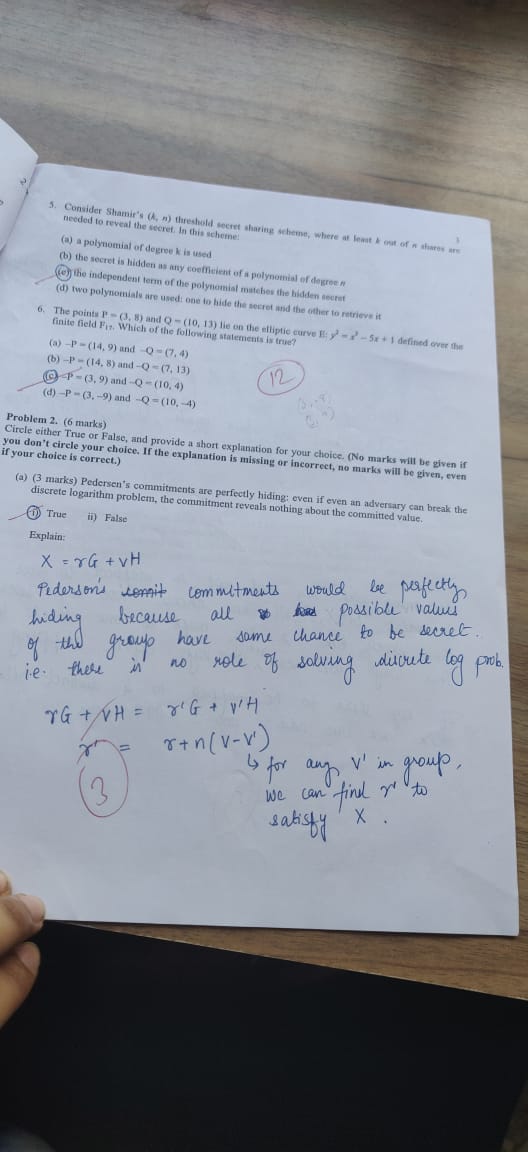 3
5. Consider Shamir's (k, n) threshold secret sharing scheme, where at least k out of n shares are
needed to reveal the secret. In this scheme:
(a) a polynomial of degree k is used
(b) the secret is hidden as any coefficient of a polynomial of degree n
(c) the independent term of the polynomial matches the hidden secret
(d) two polynomials are used: one to hide the secret and the other to retrieve it
6. The points P = (3, 8) and Q = (10, 13) lie on the elliptic curve E: y² = x³ – 5x + 1 defined over the
finite field F₁₇. Which of the following statements is true?
(a) –P = (14, 9) and –Q = (7, 4)
(b) –P = (14, 8) and –Q = (7, 13)
(c) –P = (3, 9) and –Q = (10, 4)
(d) –P = (3, –9) and –Q = (10, –4)
12
Problem 2. (6 marks)
Circle either True or False, and provide a short explanation for your choice. (No marks will be given if
you don't circle your choice. If the explanation is missing or incorrect, no marks will be given, even
if your choice is correct.)
(a) (3 marks) Pedersen's commitments are perfectly hiding: even if even an adversary can break the
discrete logarithm problem, the commitment reveals nothing about the committed value.
i) True ii) False
Explain:
X = rG + vH
Pederson's commitments would be perfectly
hiding because all possible values
of the group have same chance to be secret.
i.e. there is no role of solving discrete log prob.
rG + vH = r'G + v'H
r' = r+n(v-v')
↳ for any v' in group,
we can find r' to
satisfy X.
3